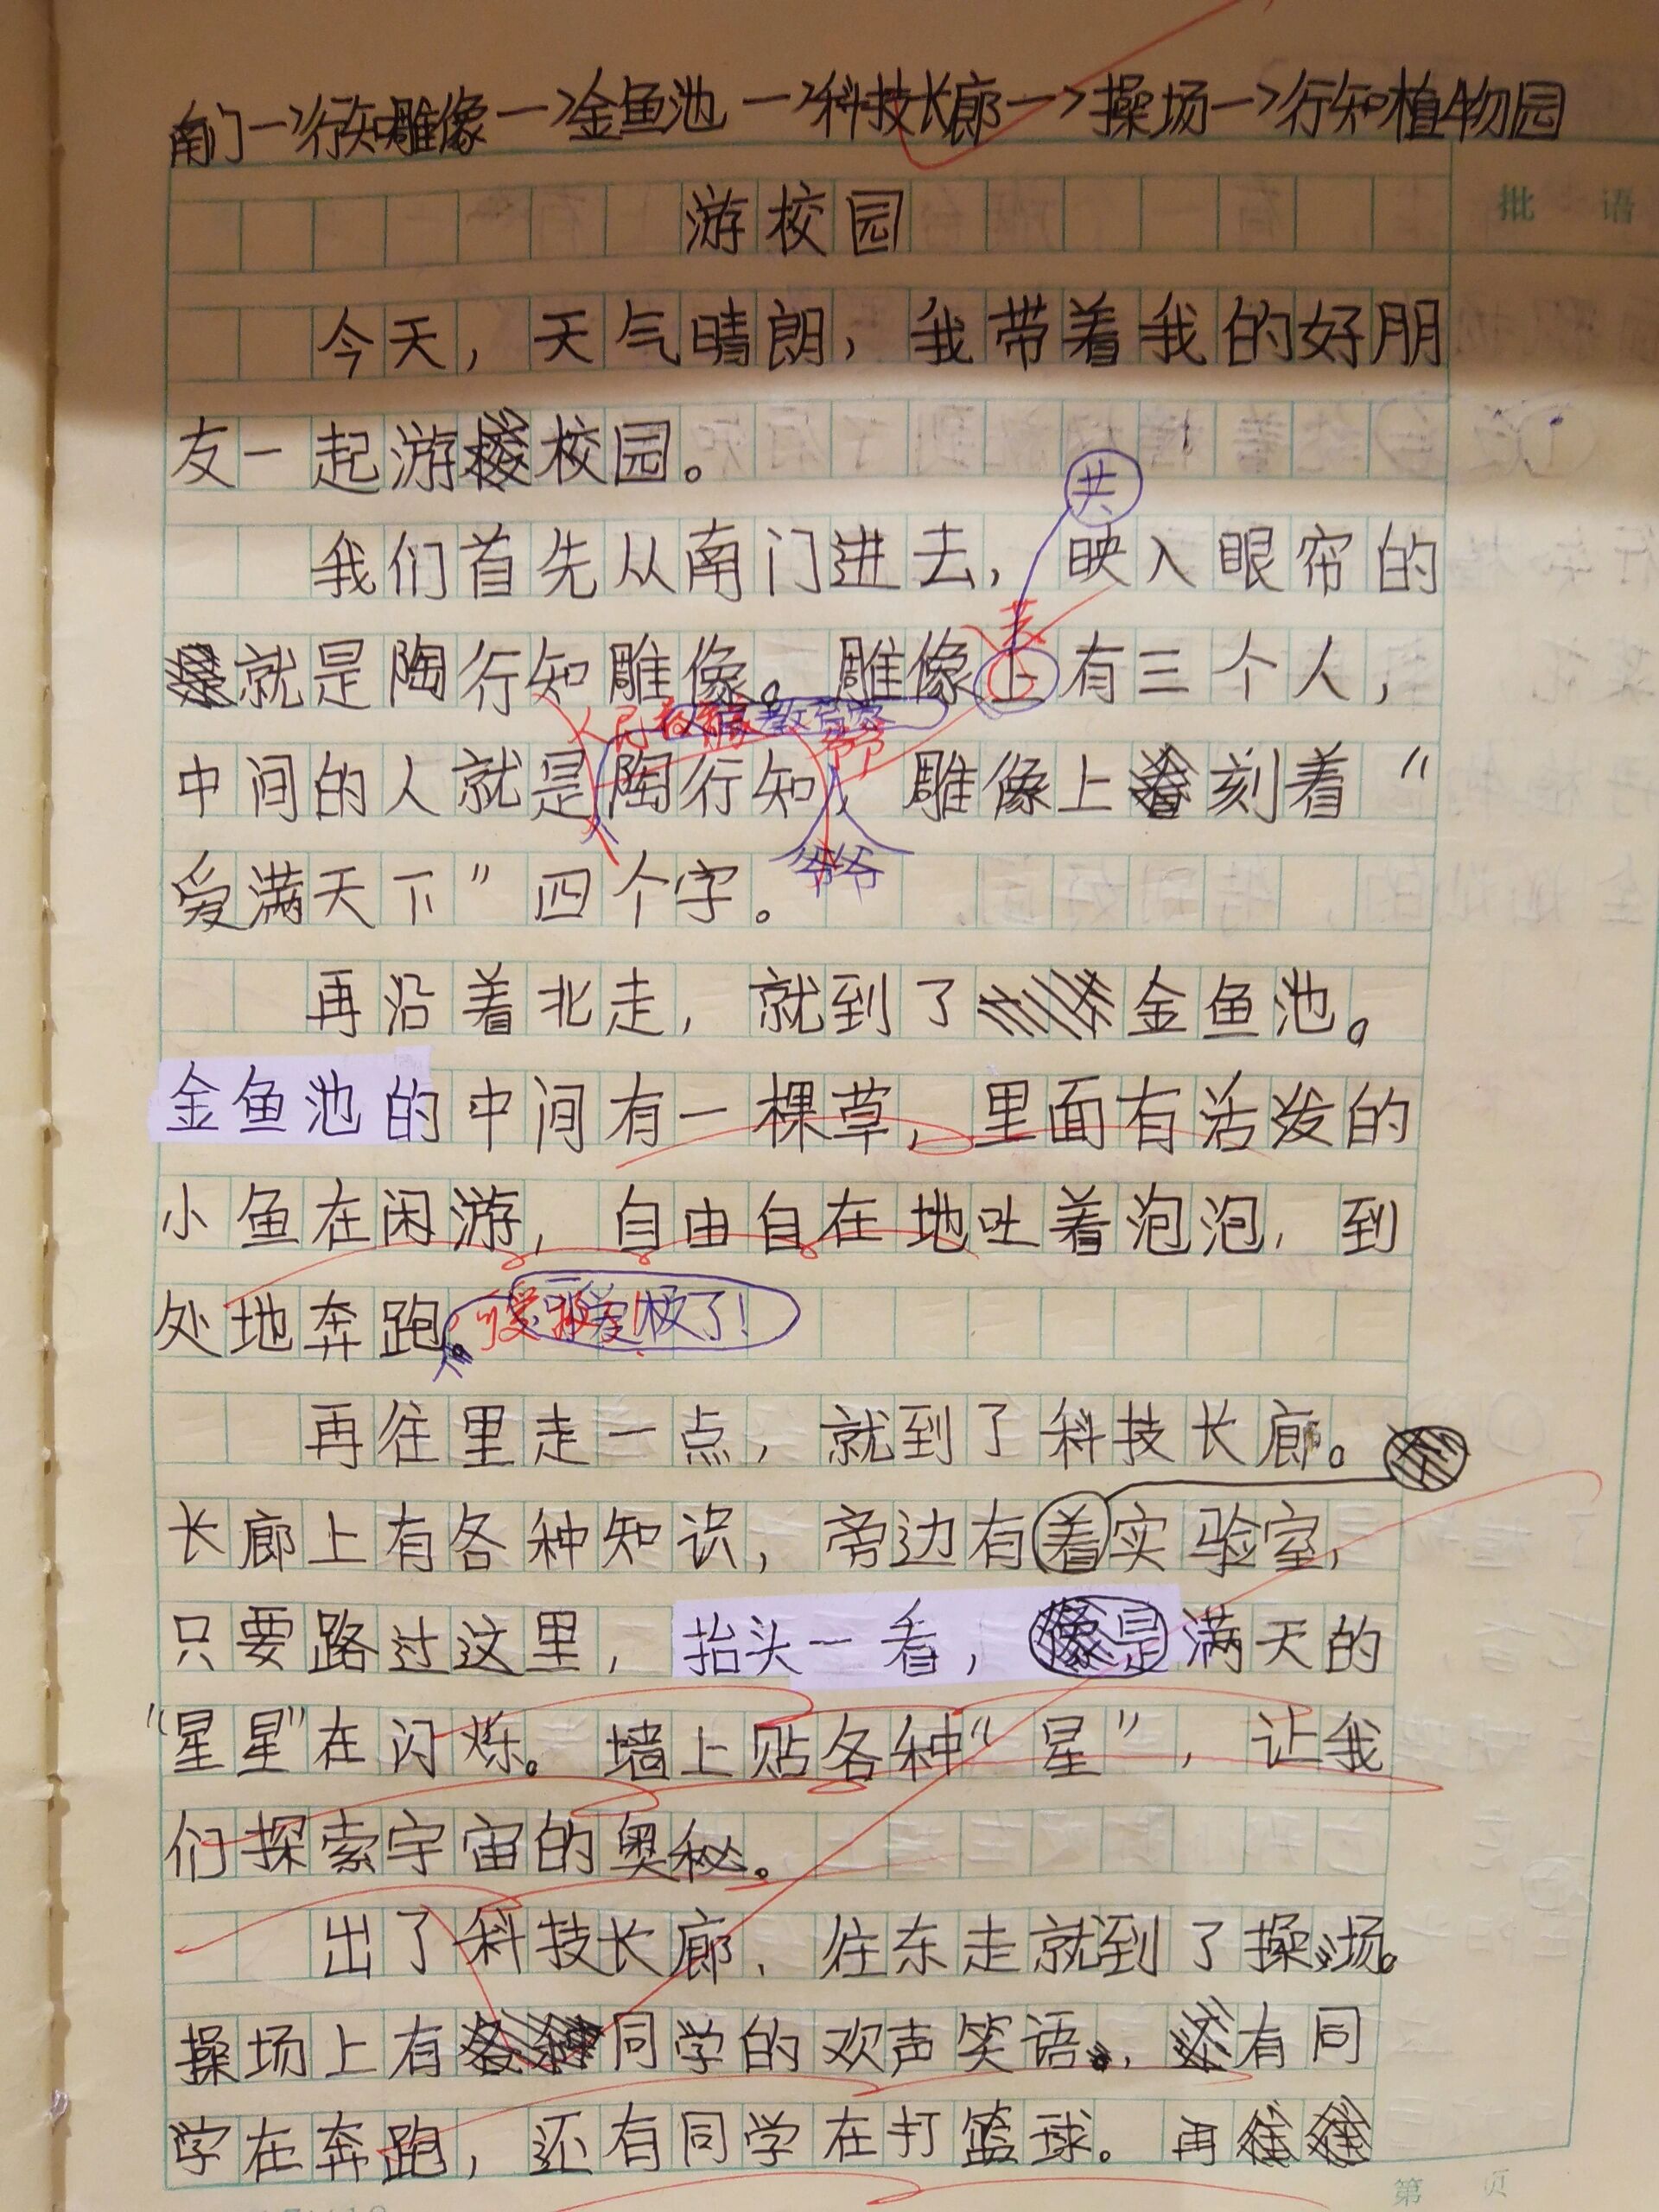 南门→行知雕像→金鱼池→科技长廊→操场→行知植物园
批语
游校园
今天，天气晴朗，我带着我的好朋
友一起游校园。
共
我们首先从南门进去，映入眼帘的
就是陶行知雕像。雕像上有三个人，
人民教育家
爷爷
中间的人就是陶行知，雕像上刻着“
爷爷
爱满天下”四个字。
再沿着北走，就到了金鱼池。
金鱼池的中间有一棵草，里面有活发的
小鱼在闲游，自由自在地吐着泡泡，到
处地奔跑。可爱极了！
再往里走一点，就到了科技长廊。
长廊上有各种知识，旁边有着实验室，
只要路过这里，抬头一看，像是满天的
“星星”在闪烁。墙上贴各种“星”，让我
们探索宇宙的奥秘。
出了科技长廊，往东走就到了操场。
操场上有同学的欢声笑语，有同
学在奔跑，还有同学在打篮球。再
第 页